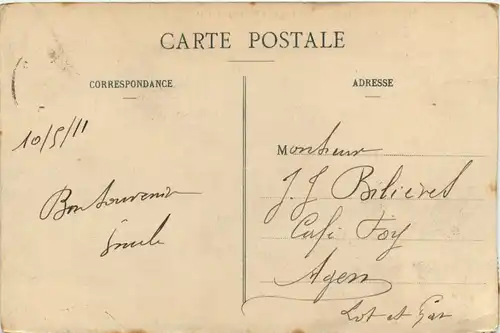 CARTE POSTALE
CORRESPONDANCE
10/5/11
Bon Souvenir
Émile
ADRESSE
Monsieur
J. J
Café Foy
Agen
Lot et Gar